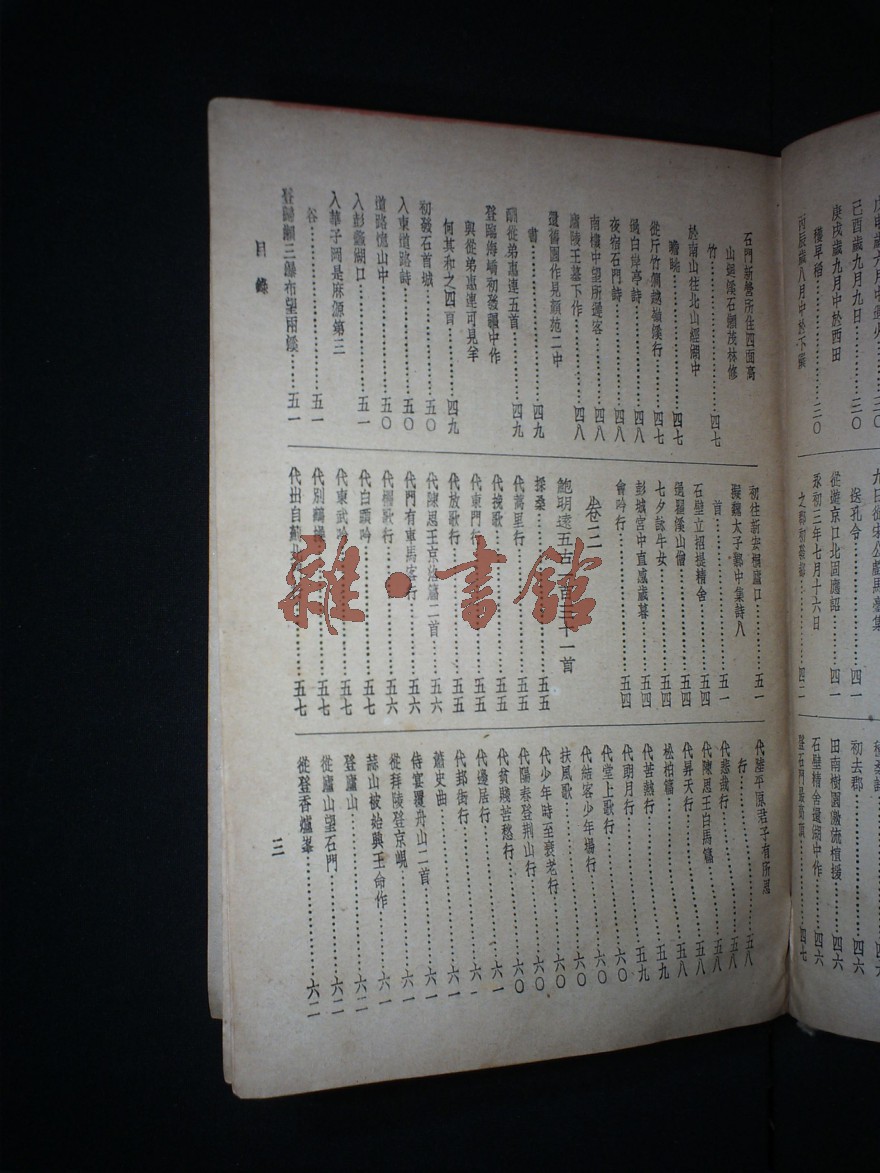 己酉歲九月九日……三〇
庚戌歲九月中於西田
穫早稻……三〇
丙辰歲八月中於下潠
送孔令……四一
從遊京口北固應詔……四一
永初三年七月十六日
之郡初發都……四二
初去郡……四六
田南樹園激流植援……四六
石壁精舍還湖中作……四六
登石門最高頂……四七
石門新營所住四面高
山迴溪石瀨茂林修
竹……四七
於南山往北山經湖中
瞻眺……四七
從斤竹澗越嶺溪行……四七
過白岸亭詩……四八
夜宿石門詩……四八
南樓中望所遲客……四八
廬陵王墓下作……四八
還舊園作見顏范二中
書……四九
酬從弟惠連五首……四九
登臨海嶠初發疆中作
與從弟惠連可見羊
何共和之四首……四九
初發石首城……五〇
入東道路詩……五〇
道路憶山中……五〇
入彭蠡湖口……五一
入華子岡是麻源第三
谷……五一
登歸瀨三瀑布望兩溪……五一
初往新安桐廬口……五一
擬魏太子鄴中集詩八
首……五一
石壁立招提精舍……五四
過瞿溪山僧……五四
七夕詠牛女……五四
彭城宮中直感歲暮……五四
會吟行……五四
卷三
鮑明遠五古一百三十一首
採桑……五五
代蒿里行……五五
代挽歌……五五
代東門行……五五
代放歌行……五五
代陳思王京洛篇二首……五六
代門有車馬客行……五六
代櫂歌行……五六
代白頭吟……五七
代東武吟……五七
代別鶴操……五七
代出自薊北……五七
代陸平原君子有所思
行……五八
代悲哉行……五八
代陳思王白馬篇……五八
代昇天行……五八
松柏篇……五九
代苦熱行……五九
代朗月行……六〇
代堂上歌行……六〇
代結客少年場行……六〇
扶風歌……六〇
代少年時至衰老行……六〇
代陽春登荊山行……六〇
代貧賤苦愁行……六一
代邊居行……六一
代邽街行……六一
蕭史曲……六一
侍宴覆舟山二首……六一
從拜陵登京峴……六一
蒜山被始興王命作……六一
登廬山……六二
從廬山望石門……六二
從登香爐峯……六二
目錄
三
雜·書館